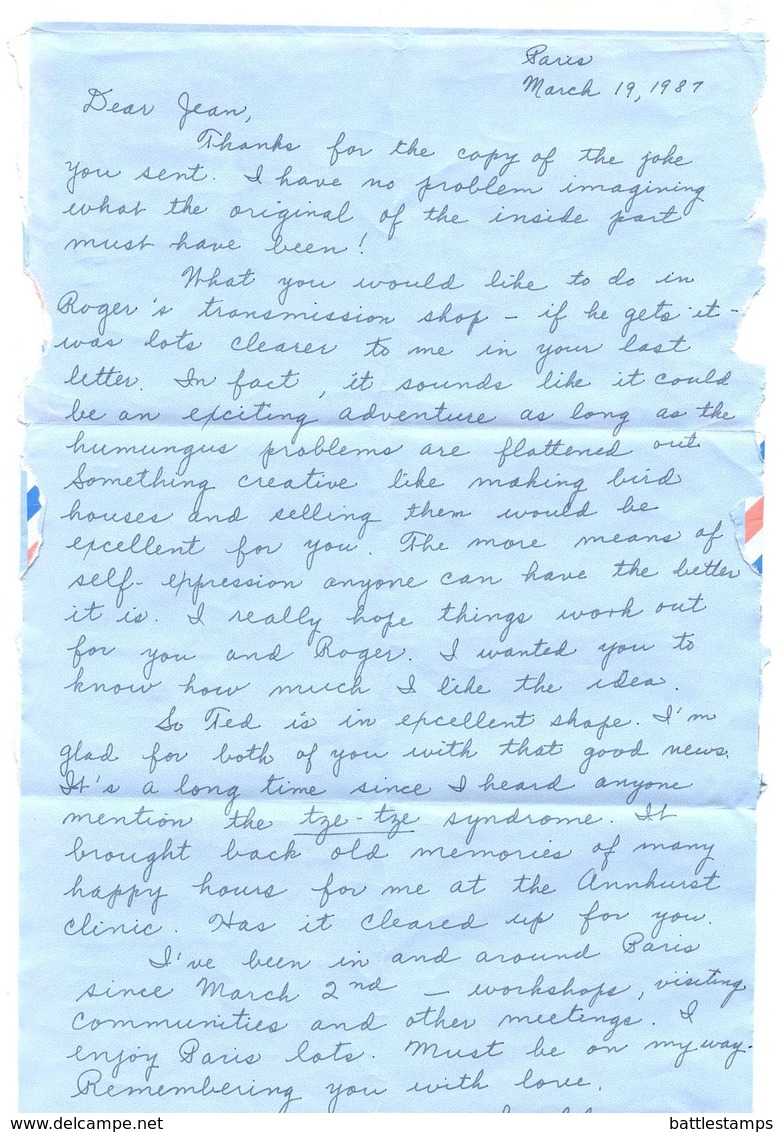 Paris
March 19, 1987
Dear Jean,
Thanks for the copy of the joke
you sent. I have no problem imagining
what the original of the inside part
must have been!
What you would like to do in
Roger's transmission shop - if he gets it -
was lots clearer to me in your last
letter. In fact, it sounds like it could
be an exciting adventure as long as the
humungus problems are flattened out
Something creative like making bird
houses and selling them would be
excellent for you. The more means of
self-expression anyone can have the better
it is. I really hope things work out
for you and Roger. I wanted you to
know how much I like the idea.
So Ted is in excellent shape. I'm
glad for both of you with that good news.
It's a long time since I heard anyone
mention the tze-tze syndrome. It
brought back old memories of many
happy hours for me at the Annhurst
clinic. Has it cleared up for you.
I've been in and around Paris
since March 2nd - workshops, visiting
communities and other meetings. I
enjoy Paris lots. Must be on my way.
Remembering you with love.
www.delcampe.net battlestamps